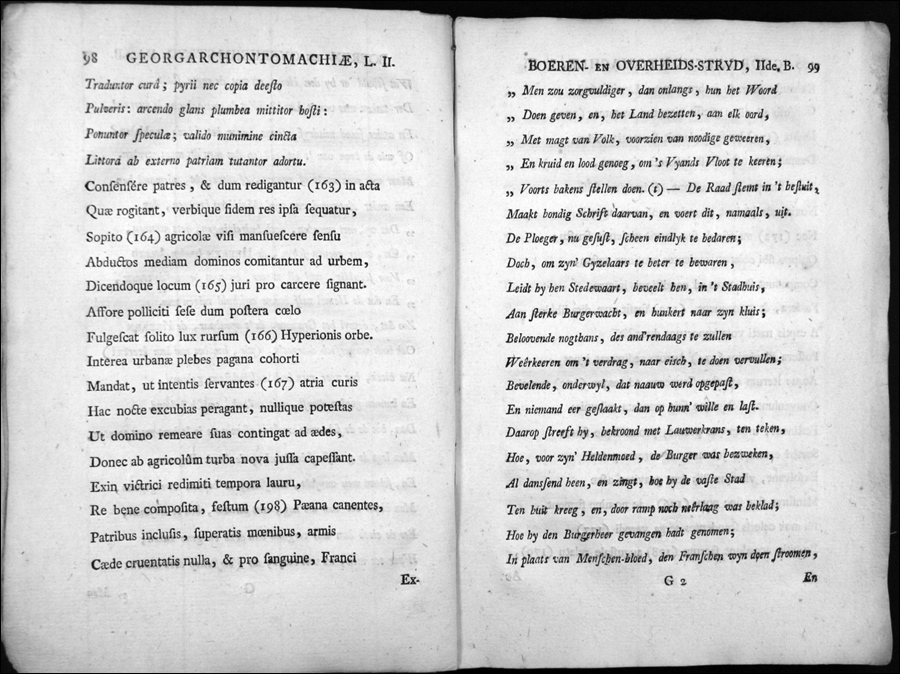 98 GEORGARCHONTOMACHIÆ, L. II.
Traduntor curâ; pyrii nec copia deeſto
Pulveris: arcendo glans plumbea mittitor hoſti:
Ponuntor ſpeculæ; valido munimine cincta
Littora ab externo patriam tutantor adortu.
Conſenſére patres, & dum redigantur (163) in acta
Quæ rogitant, verbique fidem res ipſa ſequatur,
Sopito (164) agricolæ viſi manſueſcere ſenſu
Abductos mediam dominos comitantur ad urbem,
Dicendoque locum (165) juri pro carcere ſignant.
Affore polliciti ſeſe dum poſtera cœlo
Fulgeſcat ſolito lux rurſum (166) Hyperionis orbe.
Interea urbanæ plebes pagana cohorti
Mandat, ut intentis ſervantes (167) atria curis
Hac nocte excubias peragant, nullique poteſtas
Ut domino remeare ſuas contingat ad ædes,
Donec ab agricolûm turba nova juſſa capeſſant.
Exin victrici redimiti tempora lauru,
Re bene compoſita, feſtum (198) Pæana canentes,
Patribus incluſis, ſuperatis mœnibus, armis
Cæde cruentatis nulla, & pro ſanguine, Franci
Ex-
BOEREN- EN OVERHEIDS-STRYD, IIde. B. 99
„ Men zou zorgvuldiger, dan onlangs, hun het Woord
„ Doen geven, en, het Land bezetten, aan elk oord,
„ Met magt van Volk, voorzien van noodige geweeren,
„ En kruid en lood genoeg, om 's Vyands Vloot te keeren;
„ Voorts bakens ſtellen doen. (1) — De Raad ſtemt in 't beſluit,
Maakt bondig Schrift daarvan, en voert dit, namaals, uit.
De Ploeger, nu geſuſt, ſcheen eindlyk te bedaren;
Doch, om zyn' Gyzelaars te beter te bewaren,
Leidt hy hen Stedewaart, beveelt hen, in 't Stadhuis,
Aan ſterke Burgerwacht, en hunkert naar zyn kluis;
Beloovende nogthans, des and'rendaags te zullen
Weêrkeeren om 't verdrag, naar eisch, te doen vervullen;
Bevelende, onderwyl, dat naauw werd opgepaſt,
En niemand eer geſlaakt, dan op hunn' wille en laſt.
Daarop ſtreeft hy, bekroond met Lauwerkrans, ten teken,
Hoe, voor zyn' Heldenmoed, de Burger was bezweken,
Al dansſend heen, en zingt, hoe hy de vaſte Stad
Ten buit kreeg, en, door ramp noch neêrlaag was beklad;
Hoe hy den Burgerheer gevangen hadt genomen;
In plaats van Menſchen-bloed, den Franſchen wyn doen ſtroomen,
G 2 En